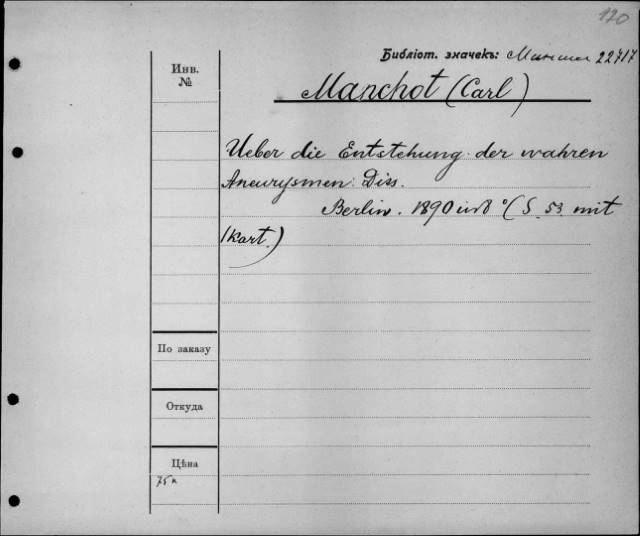 120
Библіот. значекъ: 22717
Инв.
№
Manchot (Carl)
Ueber die Entstehung der wahren
Aneurysmen. Diss.
Berlin. 1890 in 8° (S. 53 mit
1 kart.)
По заказу
Откуда
Цѣна
75 к